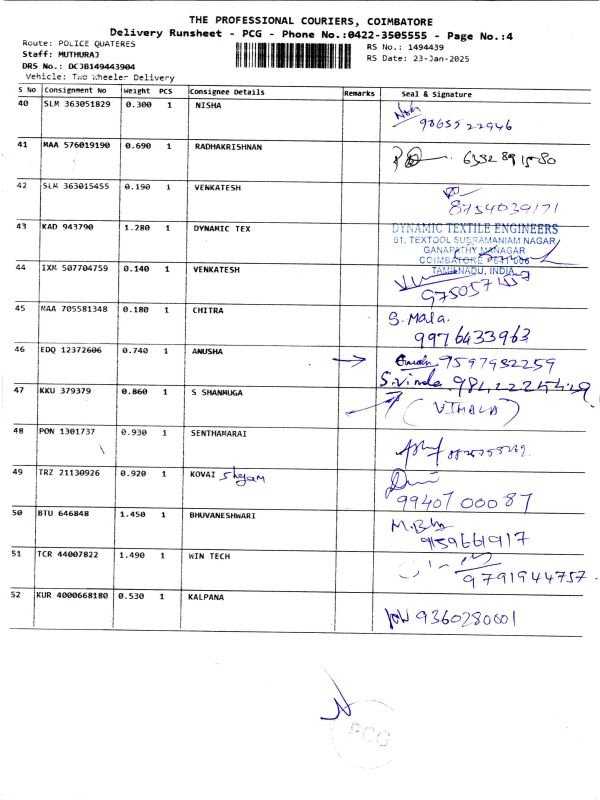 THE PROFESSIONAL COURIERS, COIMBATORE
Delivery Runsheet - PCG - Phone No.:0422-3505555 - Page No.:4
Route: POLICE QUATERES
RS No.: 1494439
Staff: MUTHURAJ
RS Date: 23-Jan-2025
DRS No.: DCJB149443904
Vehicle: Two Wheeler Delivery
S No Consignment No Weight PCS Consignee Details Remarks Seal & Signature
40 SLM 363051829 0.300 1 NISHA
9865522946
41 MAA 576019190 0.690 1 RADHAKRISHNAN
6382891580
42 SLM 363015455 0.190 1 VENKATESH
8754039171
43 KAD 943790 1.280 1 DYNAMIC TEX
DYNAMIC TEXTILE ENGINEERS
61, TEXTOOL SUBRAMANIAM NAGAR
GANAPATHY MANAGAR
COIMBATORE - 641 006
TAMILNADU, INDIA
44 IXM 507704759 0.140 1 VENKATESH
45 MAA 705581348 0.180 1 CHITRA
S. Mala.
9976433963
46 EDQ 12372606 0.740 1 ANUSHA
9597982259
47 KKU 379379 0.860 1 S SHANMUGA
(VIMALA)
48 PON 1301737 0.930 1 SENTHAMARAI
49 TRZ 21130926 0.920 1 KOVAI Shyam
9940700087
50 BTU 646848 1.450 1 BHUVANESHWARI
9159661917
51 TCR 44007822 1.490 1 WIN TECH
9791944757
52 KUR 4000668180 0.530 1 KALPANA
9360280001
PCG